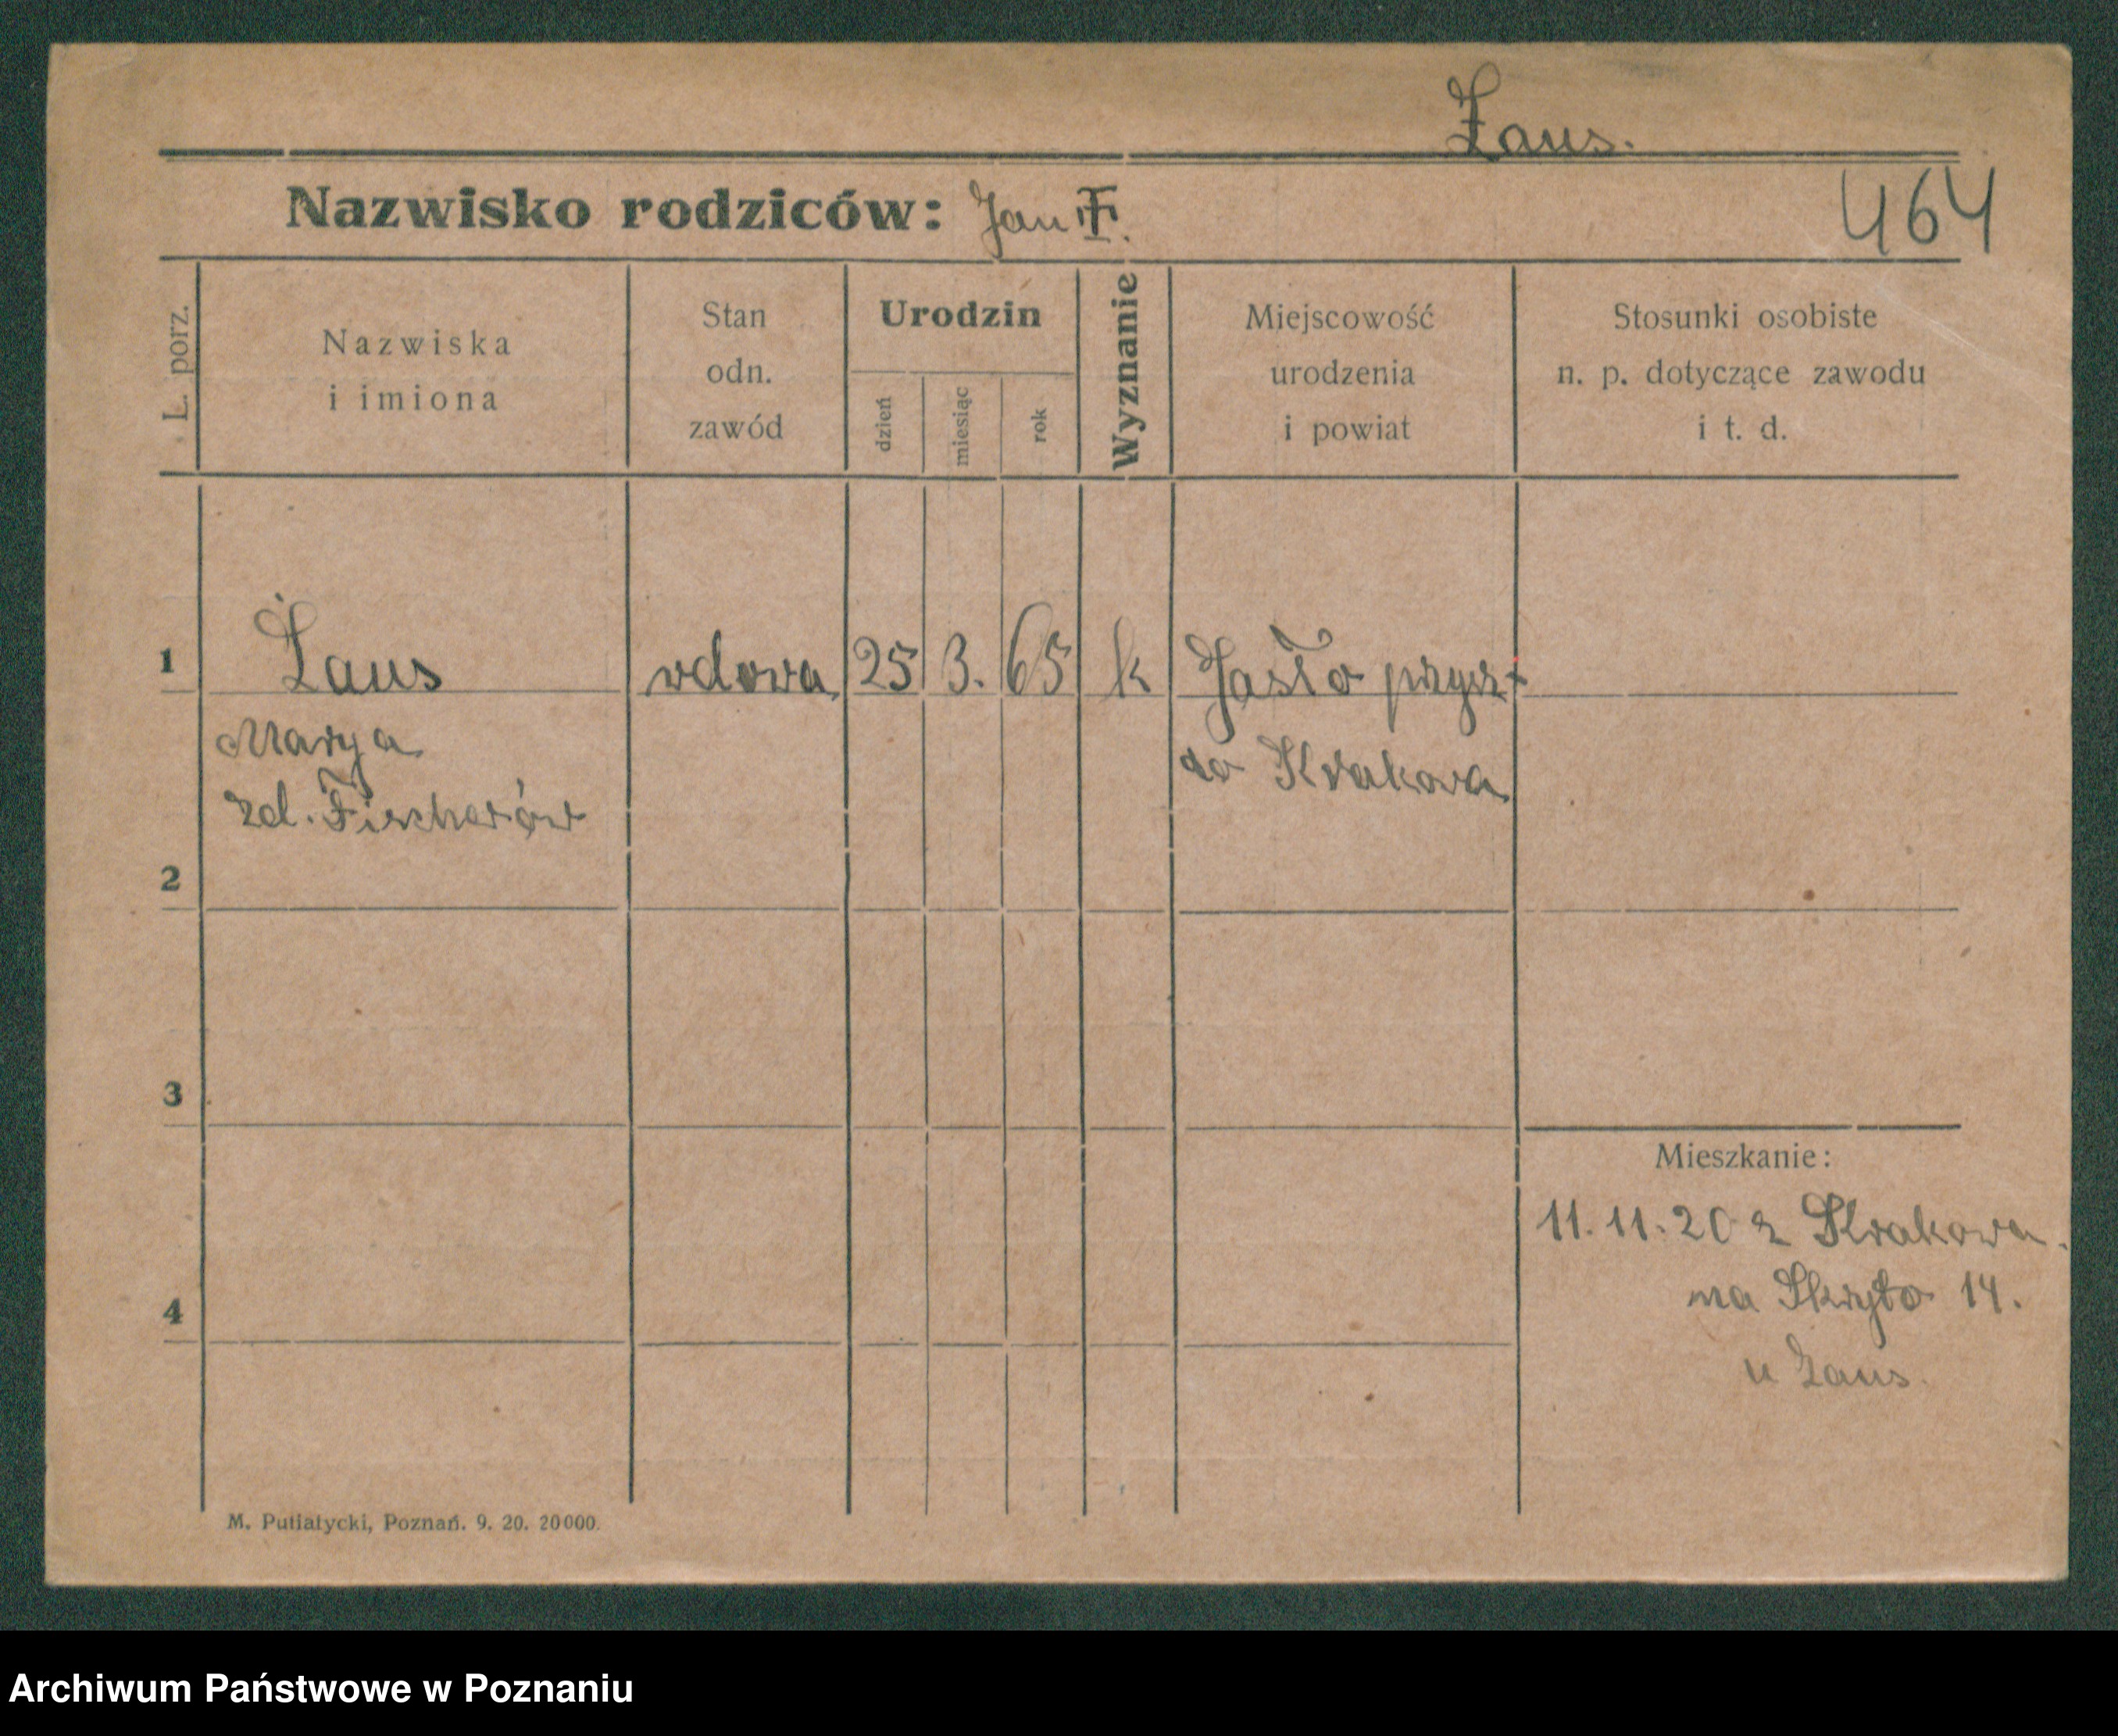 Żaus.
Nazwisko rodziców: Jan F.
464
L. porz.
Nazwiska
i imiona
Stan
odn.
zawód
Urodzin
dzień
miesiąc
rok
Wyznanie
Miejscowość
urodzenia
i powiat
Stosunki osobiste
n. p. dotyczące zawodu
i t. d.
1 Żaus wdowa 25 3. 65 k Jasło
Marya do Krakowa
zd. Fischerów
2
3
Mieszkanie:
11.11.20 z Krakowa.
na 14.
4
u Żaus.
M. Putiatycki, Poznań. 9. 20. 20000.
Archiwum Państwowe w Poznaniu